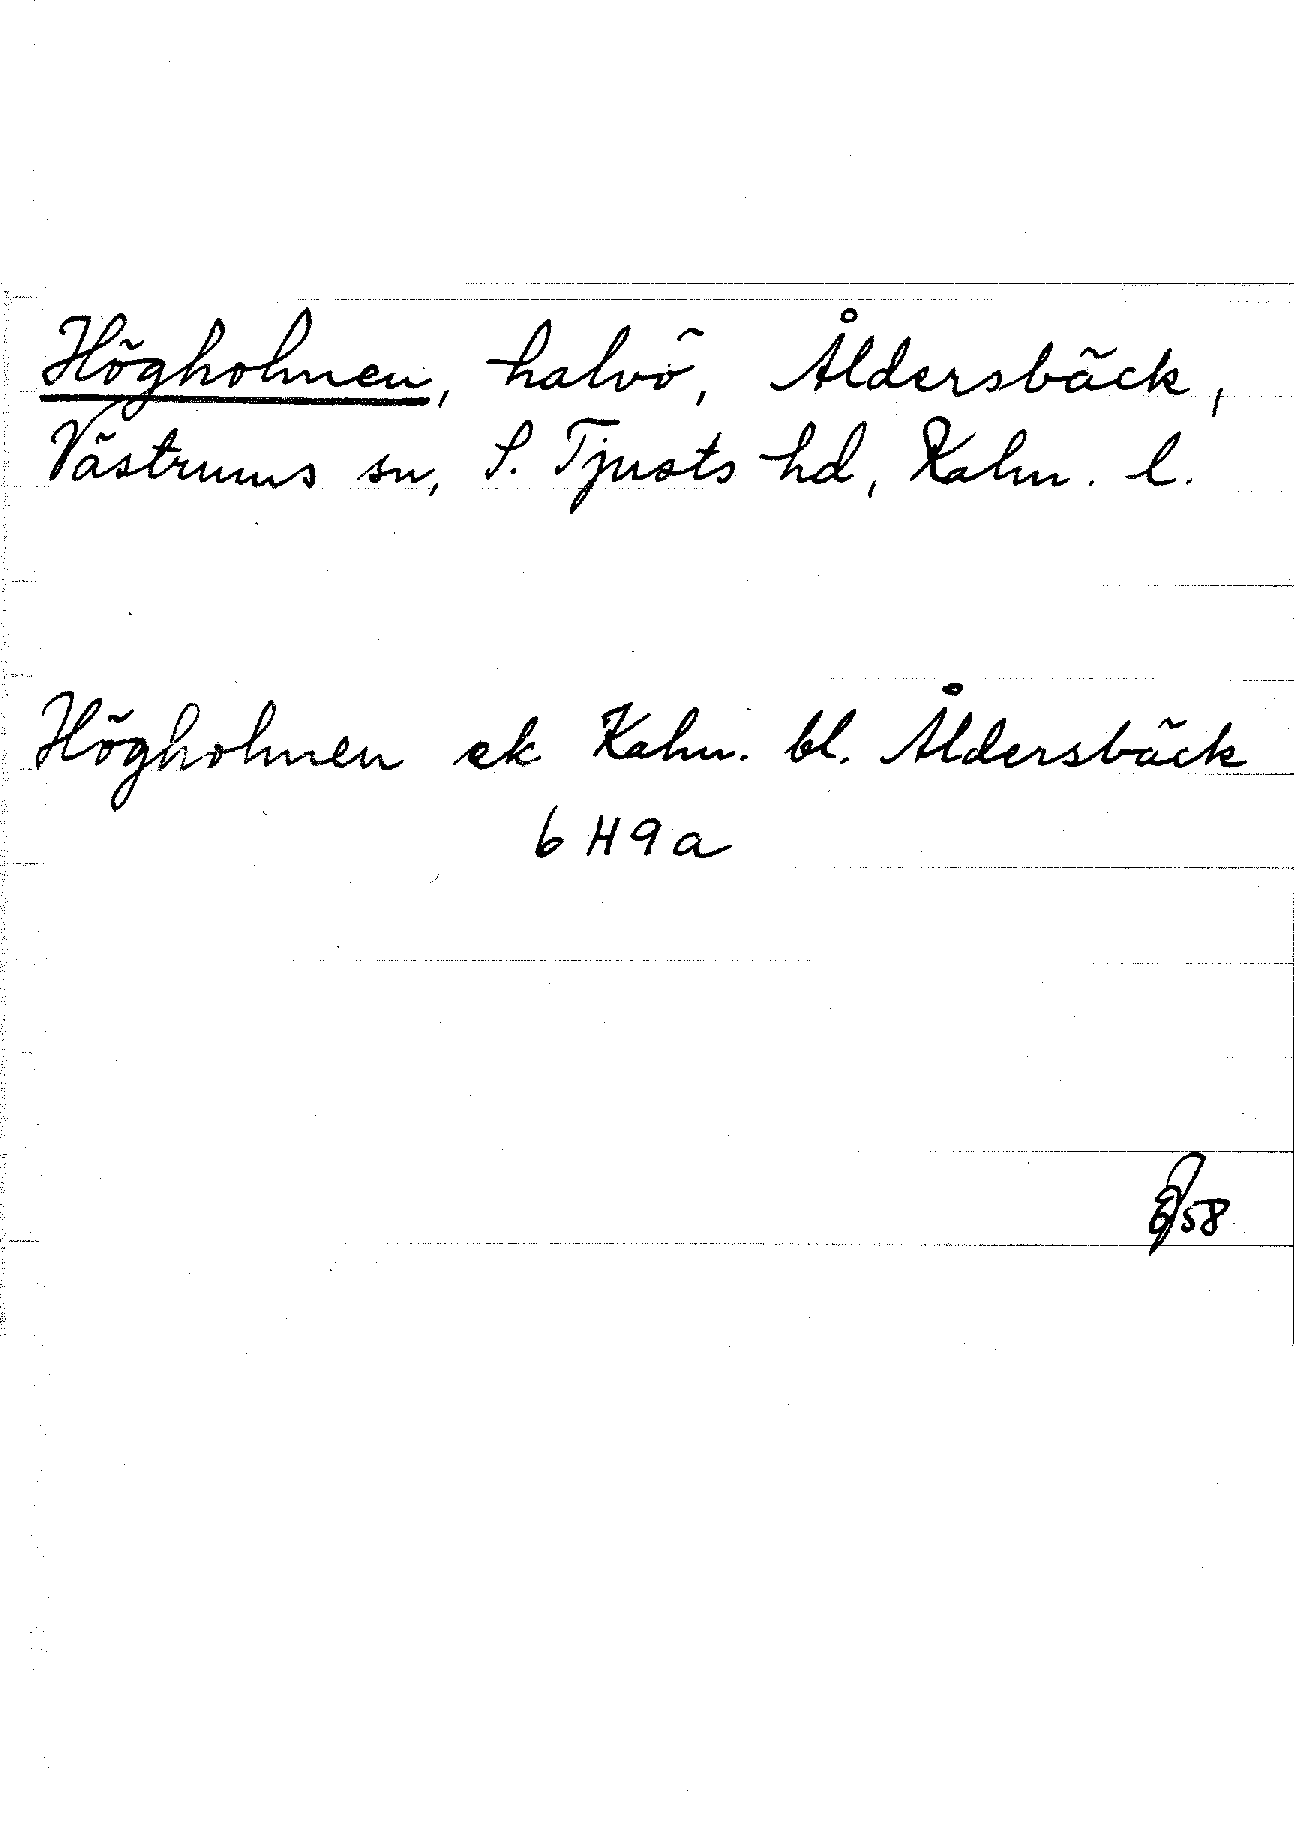 Högholmen, halvö, Åldersbäck,
Västrums sn, S. Tjusts hd, Kalm. l.
Högholmen ek Kalm. bl. Åldersbäck
6 H 9 a
58